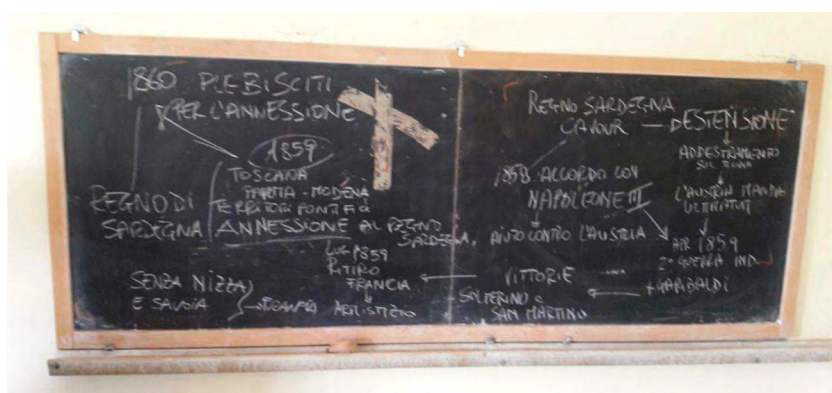 1860 PLEBISCITI
PER L'ANNESSIONE
1859
TOSCANA
PARMA - MODENA
TERRITORI PONTIFICI
ANNESSIONE AL REGNO
SARDEGNA
REGNO DI
SARDEGNA
LUG 1859
RITIRO
FRANCIA
ARMISTIZIO
SENZA NIZZA
E SAVOIA
FRANCIA
REGNO SARDEGNA
CAVOUR — DESTENSIONE
ADDESTRAMENTO
L'AUSTRIA MANDA
ULTIMATUM
1858 ACCORDO CON
NAPOLEONE III
AIUTO CONTRO L'AUSTRIA
APR 1859
2ª GUERRA IND
+ GARIBALDI
VITTORIE
SOLFERINO e
SAN MARTINO